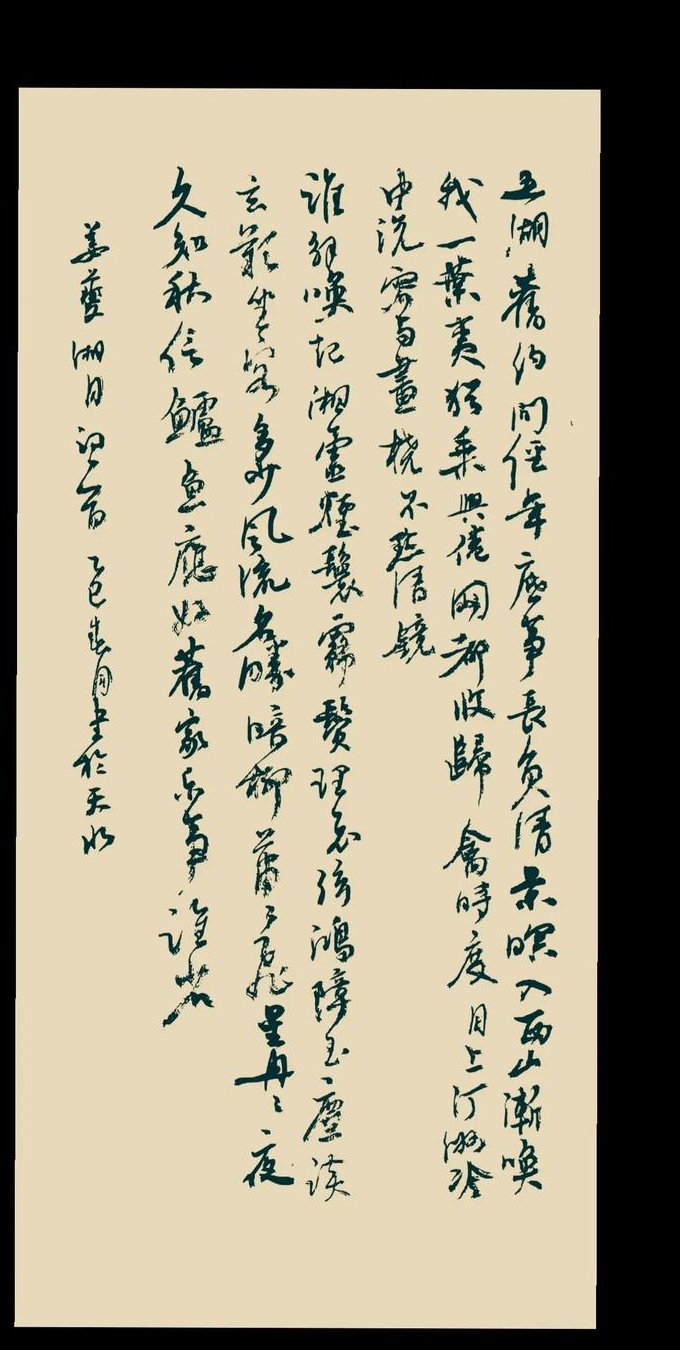 五湖舊約问經年底事長負清景暝入西山漸喚
我一葉夷猶乘興倦网都收歸禽時度月上汀洲冷
中流容与畫橈不點清鏡
誰解喚起湘靈煙鬟霧鬢理哀弦鴻陣玉麈談
玄歎坐客多少風流名勝暗柳蕭〻飛星冉〻夜
久知秋信鱸魚應好舊家乐事誰省
姜夔湘月詞一首乙巳春月書於天水